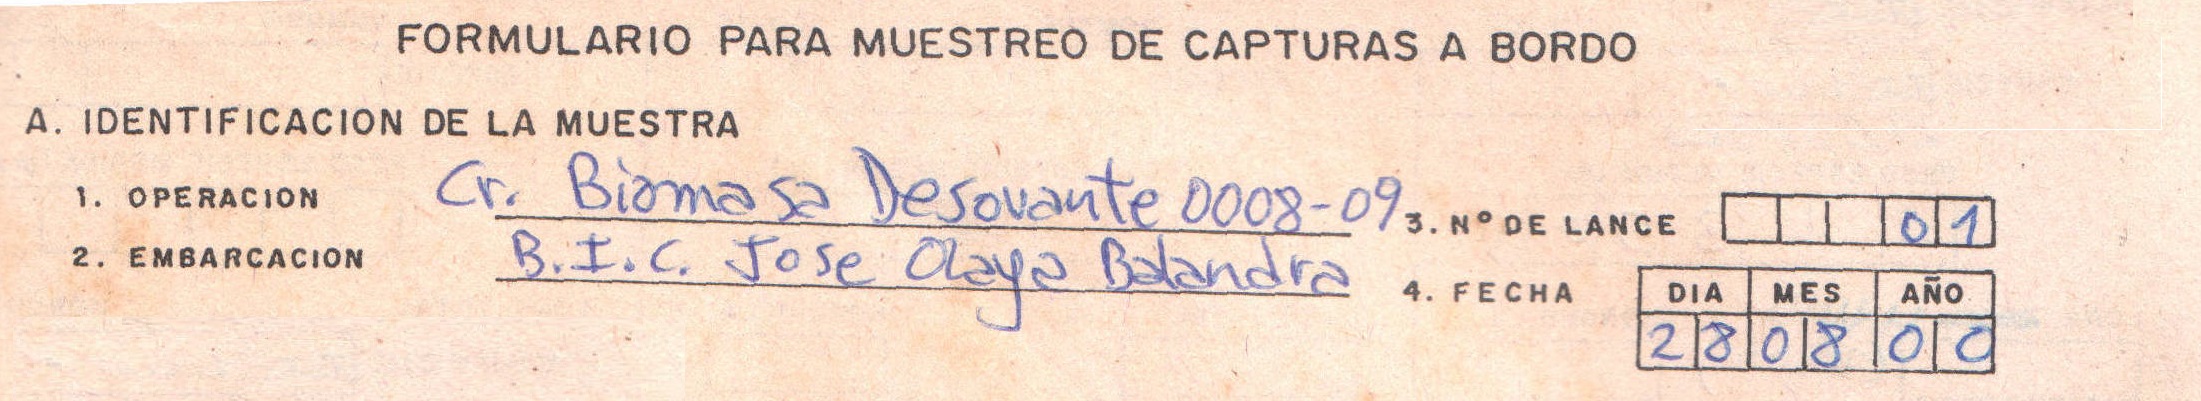 FORMULARIO PARA MUESTREO DE CAPTURAS A BORDO
A. IDENTIFICACION DE LA MUESTRA
1. OPERACION Cr. Biomasa Desovante 0008-09
3. Nº DE LANCE 01
2. EMBARCACION B.I.C. Jose Olaya Balandra
4. FECHA DIA MES AÑO
28 08 00